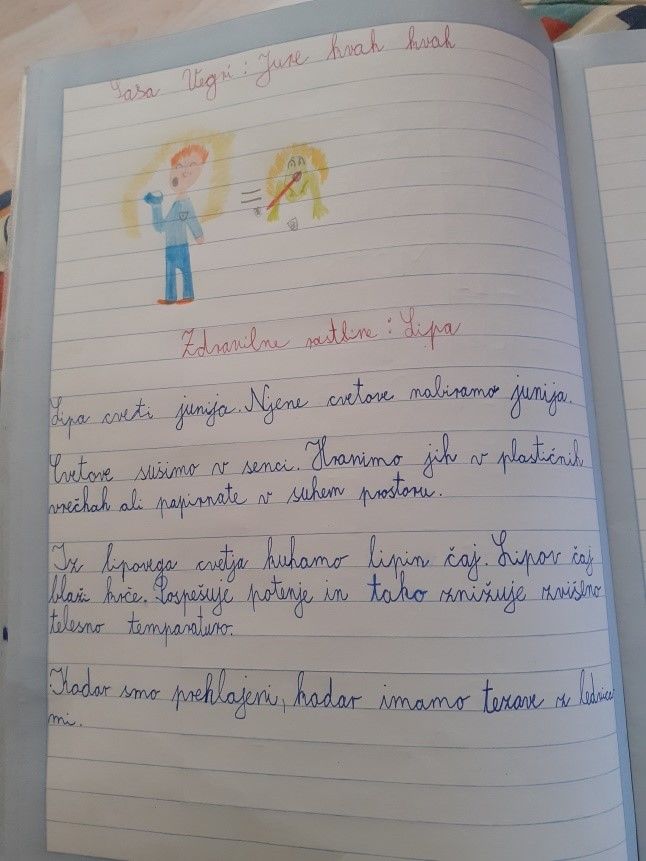 Sasa Vegri: Jure kvah kvah
Zdravilne rastline: Lipa
Lipa cveti junija. Njene cvetove nabiramo junija.
Cvetove sušimo v senci. Hranimo jih v plastičnih
vrečkah ali papirnate v suhem prostoru.
Iz lipovega cvetja kuhamo lipin čaj. Lipov čaj
blaži krče. Pospešuje potenje in tako znižuje zvišano
telesno temparaturo.
Kadar smo prehlajeni, kadar imamo tezave z ledvica
mi.